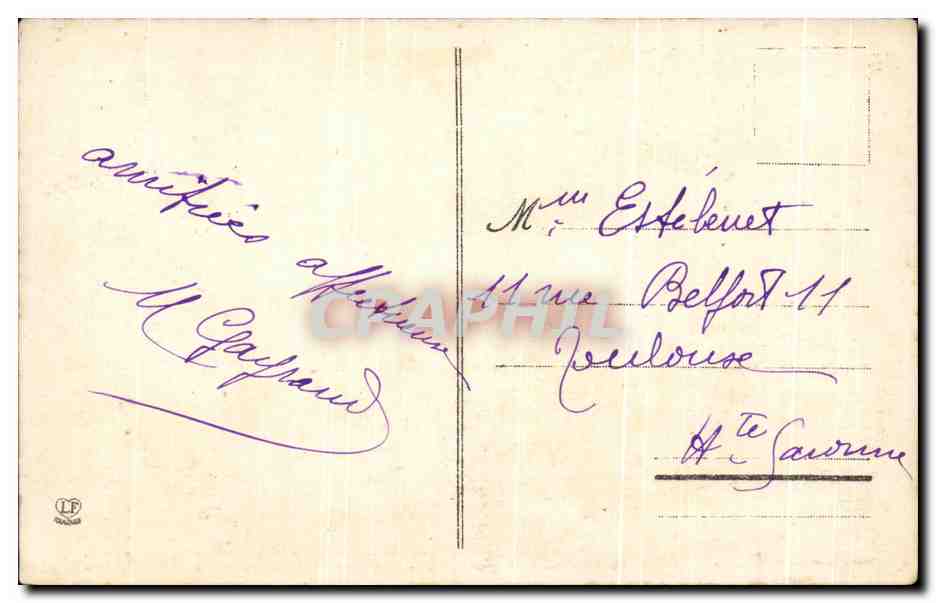 amitiées affectueuses
M Gayraud
LF
Mme Estébenet
11 rue Belfort 11
Toulouse
Hte Garonne
CPAPHIL